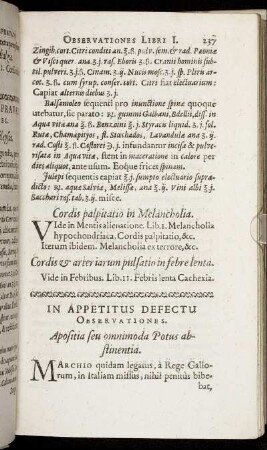 OBSERVATIONES LIBRI I. 237
Zingib. cort. Citri conditi an. ʒ.ß. pulv. sem. & rad. Pæoniæ
& Visci quer. ana ʒ.j. ras. Eboris ʒ.ß. Cranii humini subtil.
pulveri. ʒ.j.ß. Cinam. ʒ.ij. Nucis mosc. ʒ.j. sp. Pliru arcot.
ʒ.ß. cum syrup. conser. cort. Citri fiat electuarium:
Capiat alterno diebus ʒ.j.
Balsamoleo sequenti pro inunctione spinæ quoque
utebatur, sic parato: ℞. gummi Galbani, Bdellii, diss. in
Aqua vitæ ana ʒ.ß. Benzoini ʒ.j. Styracis liquid. ʒ.j. fol.
Rutæ, Chamæpityos, fl. Stœchados, Lavandulæ ana ʒ.ij.
rad. Costi ʒ.ß. Castorei ℈.j. infundantur incisa & pulverisata
in Aqua vitæ, stent in maceratione in calore per
dies aliquot, ante usum. Eoque frices spinam.
Julepi sequentis capiat ℥.j. sumpto electuario supradicto:
℞. aquæ Salviæ, Melissæ, ana ℥.ij. Vini albi ℥.j.
Sacchari ros. tab. ʒ.ij. misce.
Cordis palpitatio in Melancholia.
Vide in Mentis alienatione. Lib.1. Melancholia
hypochondriaca, Cordis palpitatio, &c.
Iterum ibidem. Melancholia ex terrore, &c.
Cordis & arteriarum pulsatio in febre lenta.
Vide in Febribus. Lib.11. Febris lenta Cachexia.
IN APPETITUS DEFECTU
OBSERVATIONES.
Apositia seu omnimoda Potus abstinentia.
MARCHIO quidam legatus, à Rege Gallorum,
in Italiam missus, nihil penitùs bibebat,